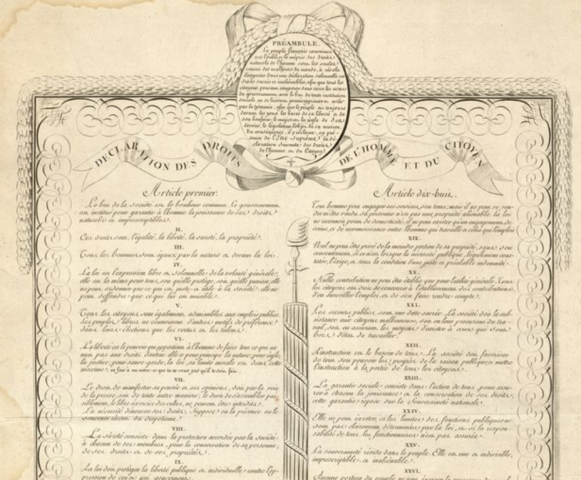 PRÉAMBULE.
Le peuple françois convaincu
que l'oubli & le mépris des Droits
naturels de l'homme sont les seules
causes des malheurs du monde, a résolu
d'exposer dans une déclaration solennelle ces
droits sacrés et inaliénables, afin que tous les
citoyens pouvant comparer sans cesse les actes
du gouvernement, avec le but de toute institution
sociale, ne se laissent jamais opprimer et avilir
par la tyrannie; afin que le peuple ait toujours
devant les yeux les bases de sa liberté & de
son bonheur, le magistrat la règle de ses
devoirs, le législateur l'objet de sa mission.
En conséquence, il proclame, en pré-
sence de l'Être Suprême, la dé-
claration suivante des Droits
de l'homme et du Citoyen.
DECLARATION DES DROITS DE L'HOMME ET DU CITOYEN
Article premier.
Le but de la Société est le bonheur commun. Le gouvernement
est institué pour garantir à l'homme la jouissance de ses droits
naturels et imprescriptibles.
II.
Ces droits sont, l'égalité, la liberté, la sureté, la propriété.
III.
Tous les hommes sont égaux par la nature et devant la loi.
IV.
La loi est l'expression libre et solemnelle de la volonté générale;
elle est la même pour tous, soit qu'elle protège, soit qu'elle punisse; elle
ne peut ordonner que ce qui est juste et utile à la société; elle ne
peut défendre que ce qui lui est nuisible.
V.
Tous les citoyens sont également admissibles aux emplois publics.
Les peuples libres ne connoissent d'autres motifs de préférence
dans leurs élections que les vertus et les talens.
VI.
La liberté est le pouvoir qui appartient à l'homme de faire tout ce qui ne
nuit pas aux droits d'autrui: elle a pour principe la nature; pour règle,
la justice; pour sauve-garde, la loi; sa limite morale est dans cette
maxime: ne fais à un autre ce que tu ne veux pas qu'il te soit fait.
VII.
Le droit de manifester sa pensée et ses opinions, soit par la voie
de la presse, soit de toute autre manière, le droit de s'assembler pai-
siblement, le libre exercice des cultes, ne peuvent être interdits.
La nécessité d'énoncer ses droits, suppose ou la présence ou le
souvenir récent du despotisme.
VIII.
La sûreté consiste dans la protection accordée par la Société
à chacun de ses membres, pour la conservation de sa personne,
de ses droits et de ses propriétés.
IX.
La loi doit protéger la liberté publique et individuelle contre l'op-
pression de ceux qui gouvernent.
Article dix-huit.
Tout homme peut engager ses services, son tems; mais il ne peut se ven-
dre ni être vendu; sa personne n'est pas une propriété aliénable. La loi
ne reconnoit point de domesticité; il ne peut exister qu'un engagement de
soins, et de reconnoissance entre l'homme qui travaille et celui qui l'emploie
XIX.
Nul ne peut être privé de la moindre portion de sa propriété, sans son
consentement, si ce n'est lorsque la nécessité publique, légalement cons-
tatée, l'exige, et sous la condition d'une juste et préalable indemnité.
XX.
Nulle contribution ne peut être établie que pour l'utilité générale. Tous
les citoyens ont droit de concourir à l'établissement des contributions,
d'en surveiller l'emploi, et de s'en faire rendre compte.
XXI.
Les secours publics sont une dette sacrée. La société doit la sub-
sistance aux citoyens malheureux, soit en leur procurant du tra-
vail, soit en assurant les moyens d'exister à ceux qui sont hors
d'état de travailler.
XXII.
L'instruction est le besoin de tous. La société doit favoriser
de tout son pouvoir les progrès de la raison publique, et mettre
l'instruction à la portée de tous les citoyens.
XXIII.
La garantie sociale consiste dans l'action de tous, pour assu-
rer à chacun la jouissance et la conservation de ses droits;
cette garantie repose sur la Souveraineté nationale.
XXIV.
Elle ne peut exister, si les limites des fonctions publiques ne
sont pas clairement déterminées par la loi, et si la respon-
sabilité de tous les fonctionnaires n'est pas assurée.
XXV.
La souveraineté réside dans le peuple. Elle est une et indivisible,
imprescriptible et inaliénable.
XXVI.
Aucune portion du peuple ne peut exercer la puissance du